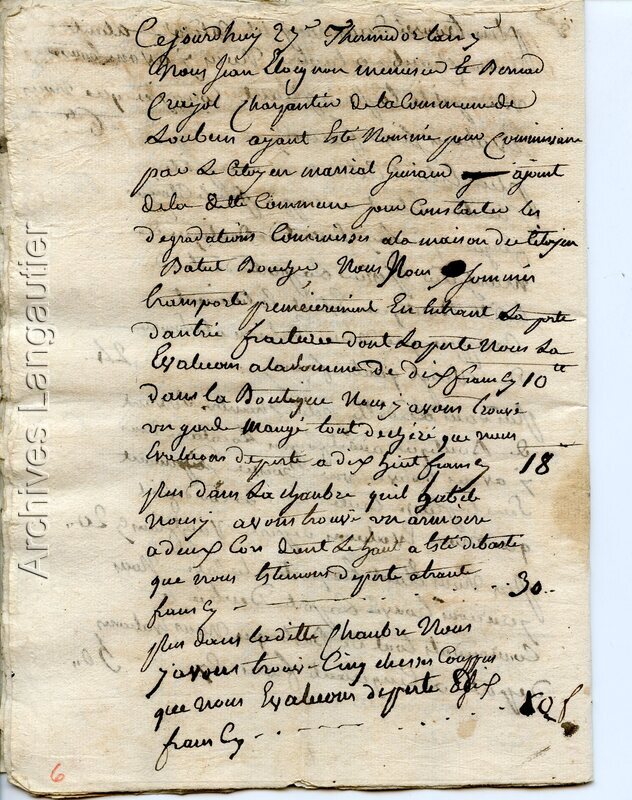 Cejourdhuy 27e Thermidor lan 7
Nous Jean menusier et Bernad
Crayol Charpantier de la Commune de
Loubens ayant Esté Nommé pour Commissaire
par Le Citoyen marsial Guiraud ajoint
de la ditte Commune pour Constater les
degradations Commisses a la maison du Citoyen
Batut Nous Nous sommes
transporté premeierement En Entrant La porte
dantrée fracturée dont La perte Nous La
Evaluons a la somme de dix francs 10 tt
dans la Boutique Nous y avons trouvé
un garde mangé tout decheré que nous
Evaluons de perte a dix huit francs 18
plus dans La chanbre quil habite
Nous y avons trouvé un armoire
a deux Cors dont Le haut a Esté
que nous Estimons de perte a trante
francs 30
plus dans laditte Chanbre Nous
y avons trouvé Cinq chesses Couppés
que nous Evaluons de perte dix
francs
Archives Langautier
6